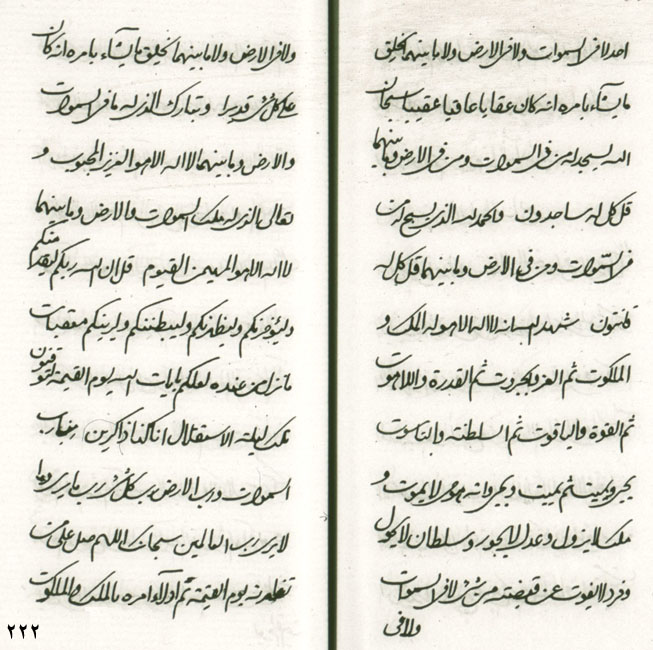 احد لا فی السموات ولا فی الارض ولا ما بینهما یخلق
ما یشآء بامره انه کان عقابا عاقبا عقیبا سبحان
الله یسجد له من فی السموات ومن فی الارض وما بینهما
قل کل له ساجدون والحمد لله الذی یسبح له من
فی السموات ومن فی الارض وما بینهما قل کل له
قانتون شهد الله انه لا اله الا هو له الملک و
الملکوت ثم العز والجبروت ثم القدرة واللاهوت
ثم القوة والیاقوت ثم السلطنة والناسوت
یحیی ویمیت ثم یمیت ویحیی وانه هو حی لا یموت و
ملک لا یزول وعدل لا یجور وسلطان لا یحول
وفرد لا یفوت عن قبضته من شیء لا فی السموات
ولا فی
ولا فی الارض ولا ما بینهما یخلق ما یشآء بامره انه کان
علی کل شیء قدیرا وتبارک الذی له ما فی السموات
والارض وما بینهما لا اله الا هو العزیز المحبوب و
تعالی الذی له ملک السموات والارض وما بینهما
لا اله الا هو المهیمن القیوم قل ان الله ربکم منکم
ولیؤخرنکم ولیظهرنکم ولیبطننکم ولیرینکم معقبات
ما نزل من عنده لعلکم بایات الله یوم القیمة توقنون
تلک لیلة الاستقلال انا کنا ذاکرین
السموات ورب الارض رب کل شیء رب ما یری وما
لا یری رب العالمین سبحانک اللهم صل علی من
تظهرنه یوم القیمة ثم ادلاء امره بالملک والملکوت
٢٢٢